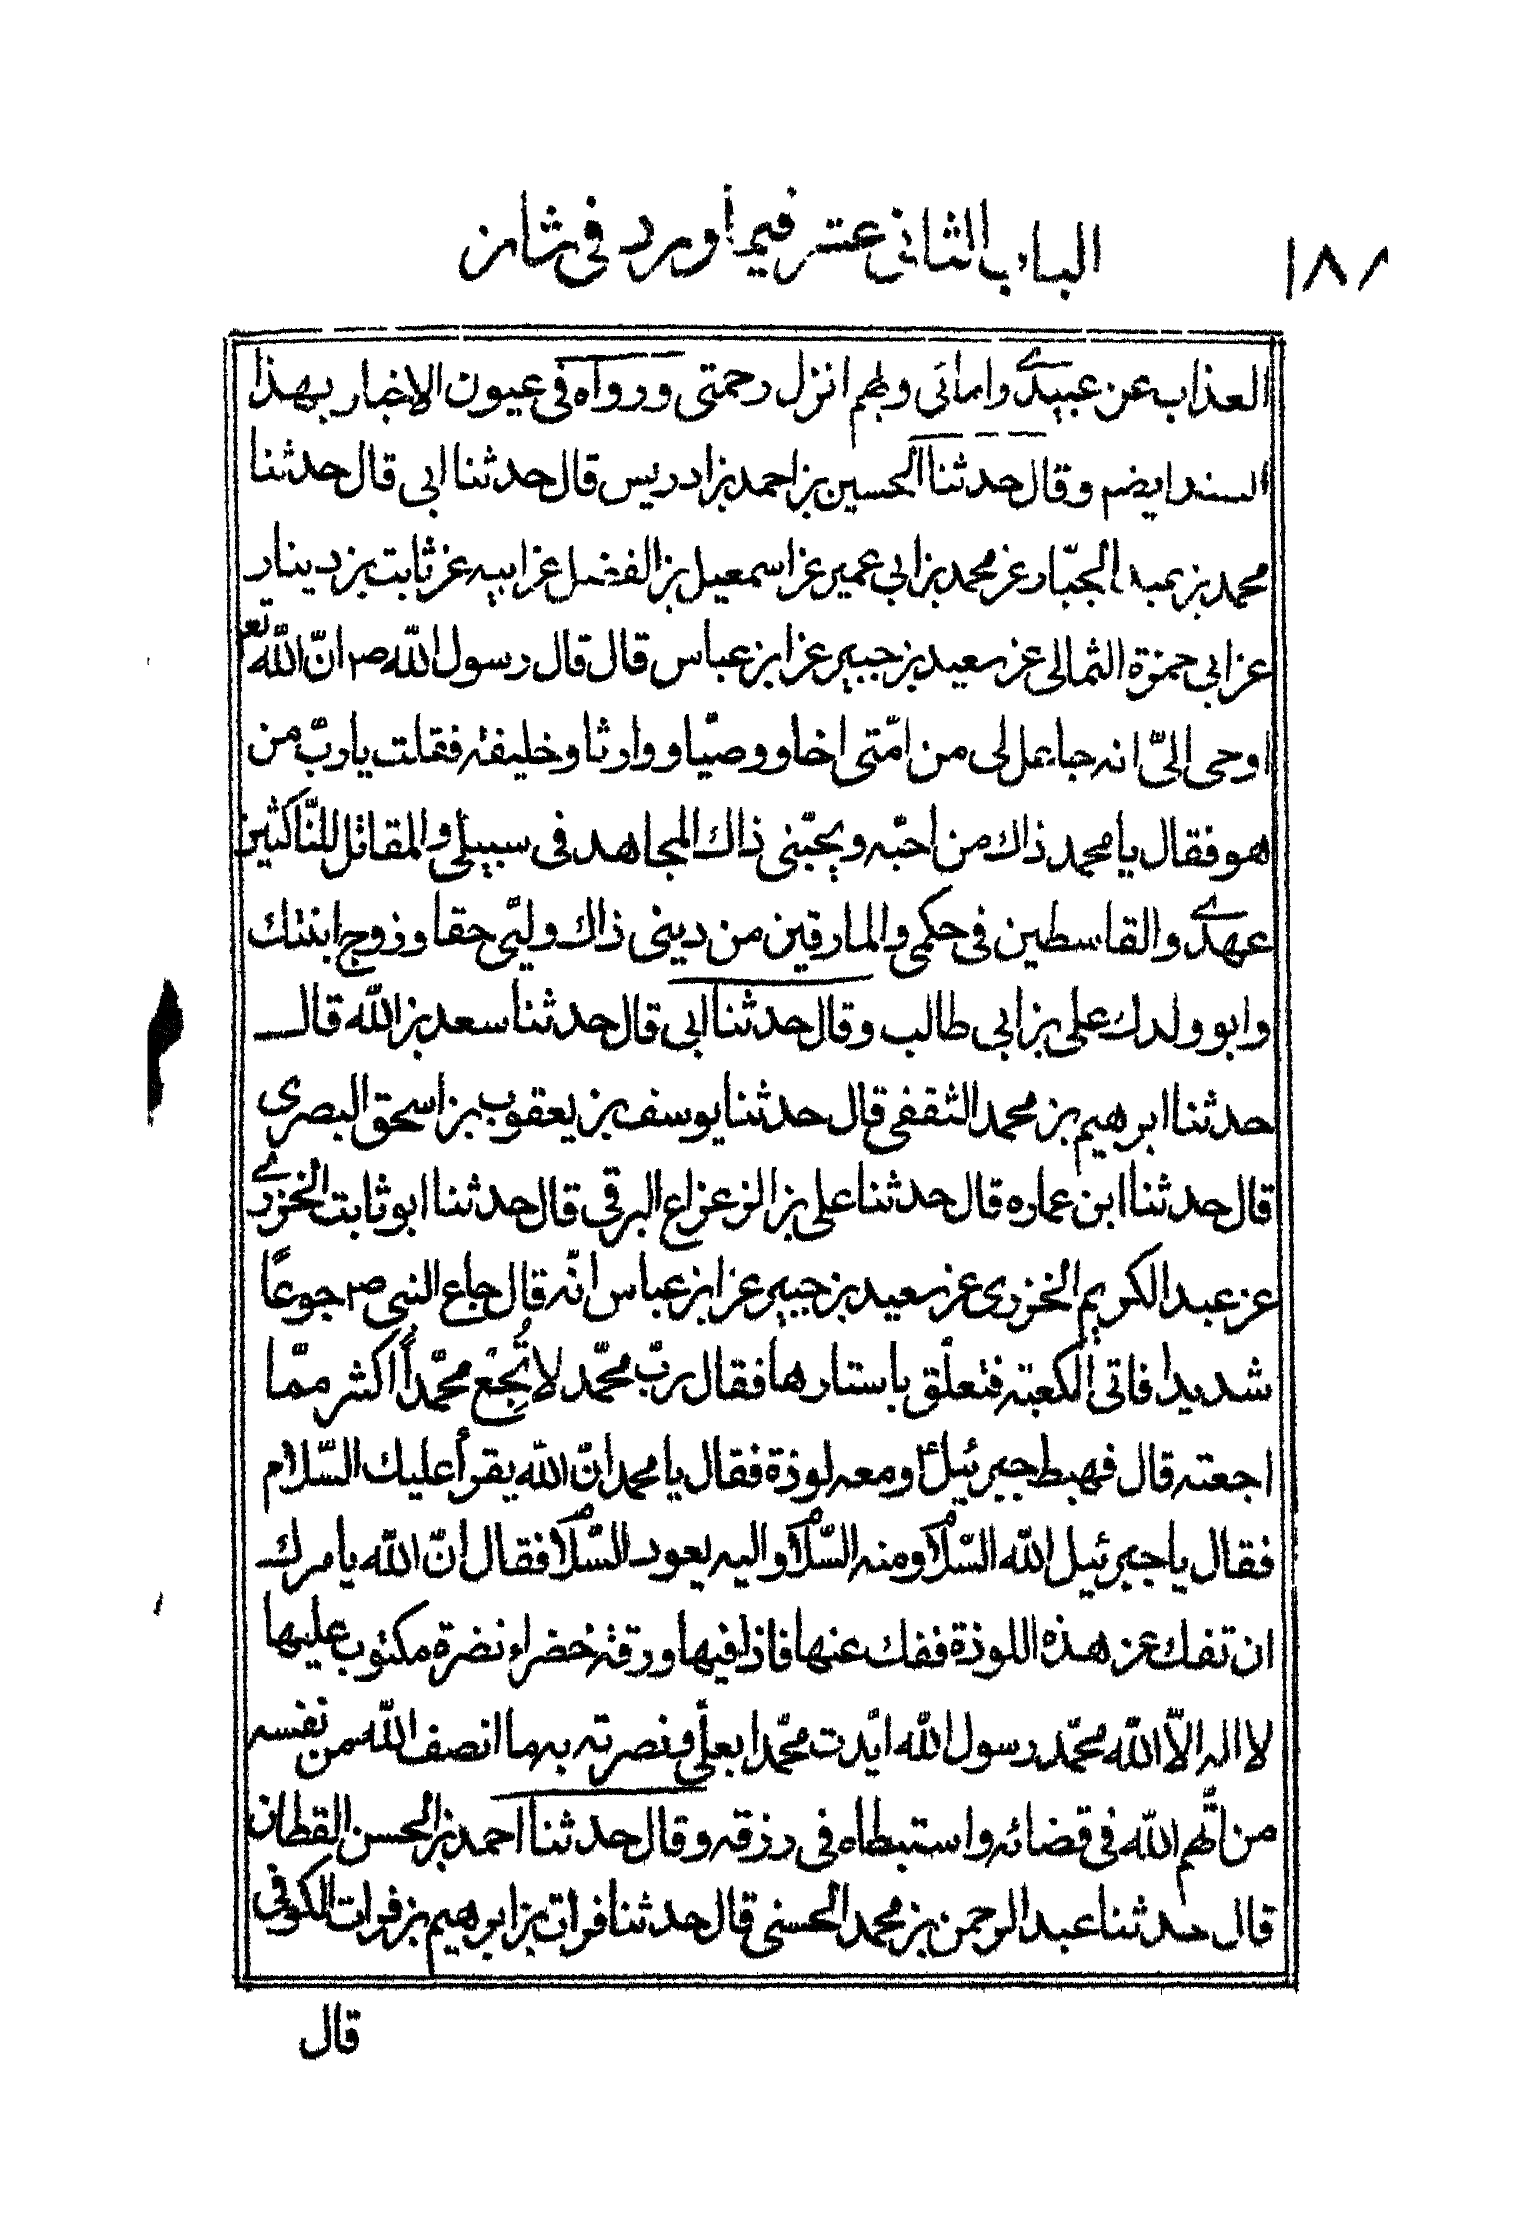 ١٨٠
الباب الثانى عشر فيما ورد فى شان
العذاب عن عبيدى وامائى وبهم انزل رحمتى ورواه فى عيون الاخبار بهذا
السند ايضم وقال حدثنا الحسين بن احمد بن ادريس قال حدثنا ابى قال حدثنا
محمد بن عبد الجبار عن محمد بن ابى عمير عن اسمعيل بن الفضل عن ابيه عن ثابت بن دينار
عن ابى حمزة الثمالى عن سعيد بن جبير عن ابن عباس قال قال رسول الله ص انّ الله تع
اوحى الىّ انه جاعل لى من امّتى اخا و وصيّا و وارثا و خليفة فقلت يا ربّ من
هو فقال يا محمد ذاك من احبّه ويحبّنى ذاك المجاهد فى سبيلى والمقاتل للنّاكثين
عهدى والقاسطين فى حكمى والمارقين من دينى ذاك وليّى حقا وزوج ابنتك
وابو ولدك على بن ابى طالب وقال حدثنا ابى قال حدثنا سعد بن الله قال
حدثنا ابرهيم بن محمد الثقفى قال حدثنا يوسف بن يعقوب بن اسحق البصرى
قال حدثنا ابن عماره قال حدثنا على بن الزعزاع البرقى قال حدثنا ابو ثابت الخزرى
عن عبد الكريم الخزرى عن سعيد بن جبير عن ابن عباس انّه قال جاع النبى ص جوعًا
شديدا فاتى الكعبة فتعلّق باستارها فقال ربّ محمّد لا تُجِعْ محمّداً اكثر ممّا
اجعته قال فهبط جبرئيل ع ومعه لوذة فقال يا محمد انّ الله يقرأ عليك السّلام
فقال يا جبرئيل الله السّلام ومنه السّلام واليه يعود السّلام فقال انّ الله يامرك
ان تفك عن هذه اللوذة ففك عنها فاذا فيها ورقة خضراء نضرة مكتوب عليها
لا اله الاّ الله محمّد رسول الله ايّدت محمّدا بعلىّ ونصرته به ما انصف الله من نفسه
من اتّهم الله فى قضائه واستبطاه فى رزقه وقال حدثنا احمد بن الحسن القطان
قال حدثنا عبد الرحمن بن محمد الحسنى قال حدثنا فرات بن ابرهيم بن فرات الكوفى
قال